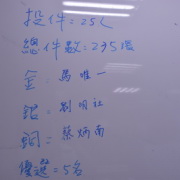 投件=25人
總件數=295張
金:馬唯一
銀:劉明社
銅:蔡炳南
優選=5名